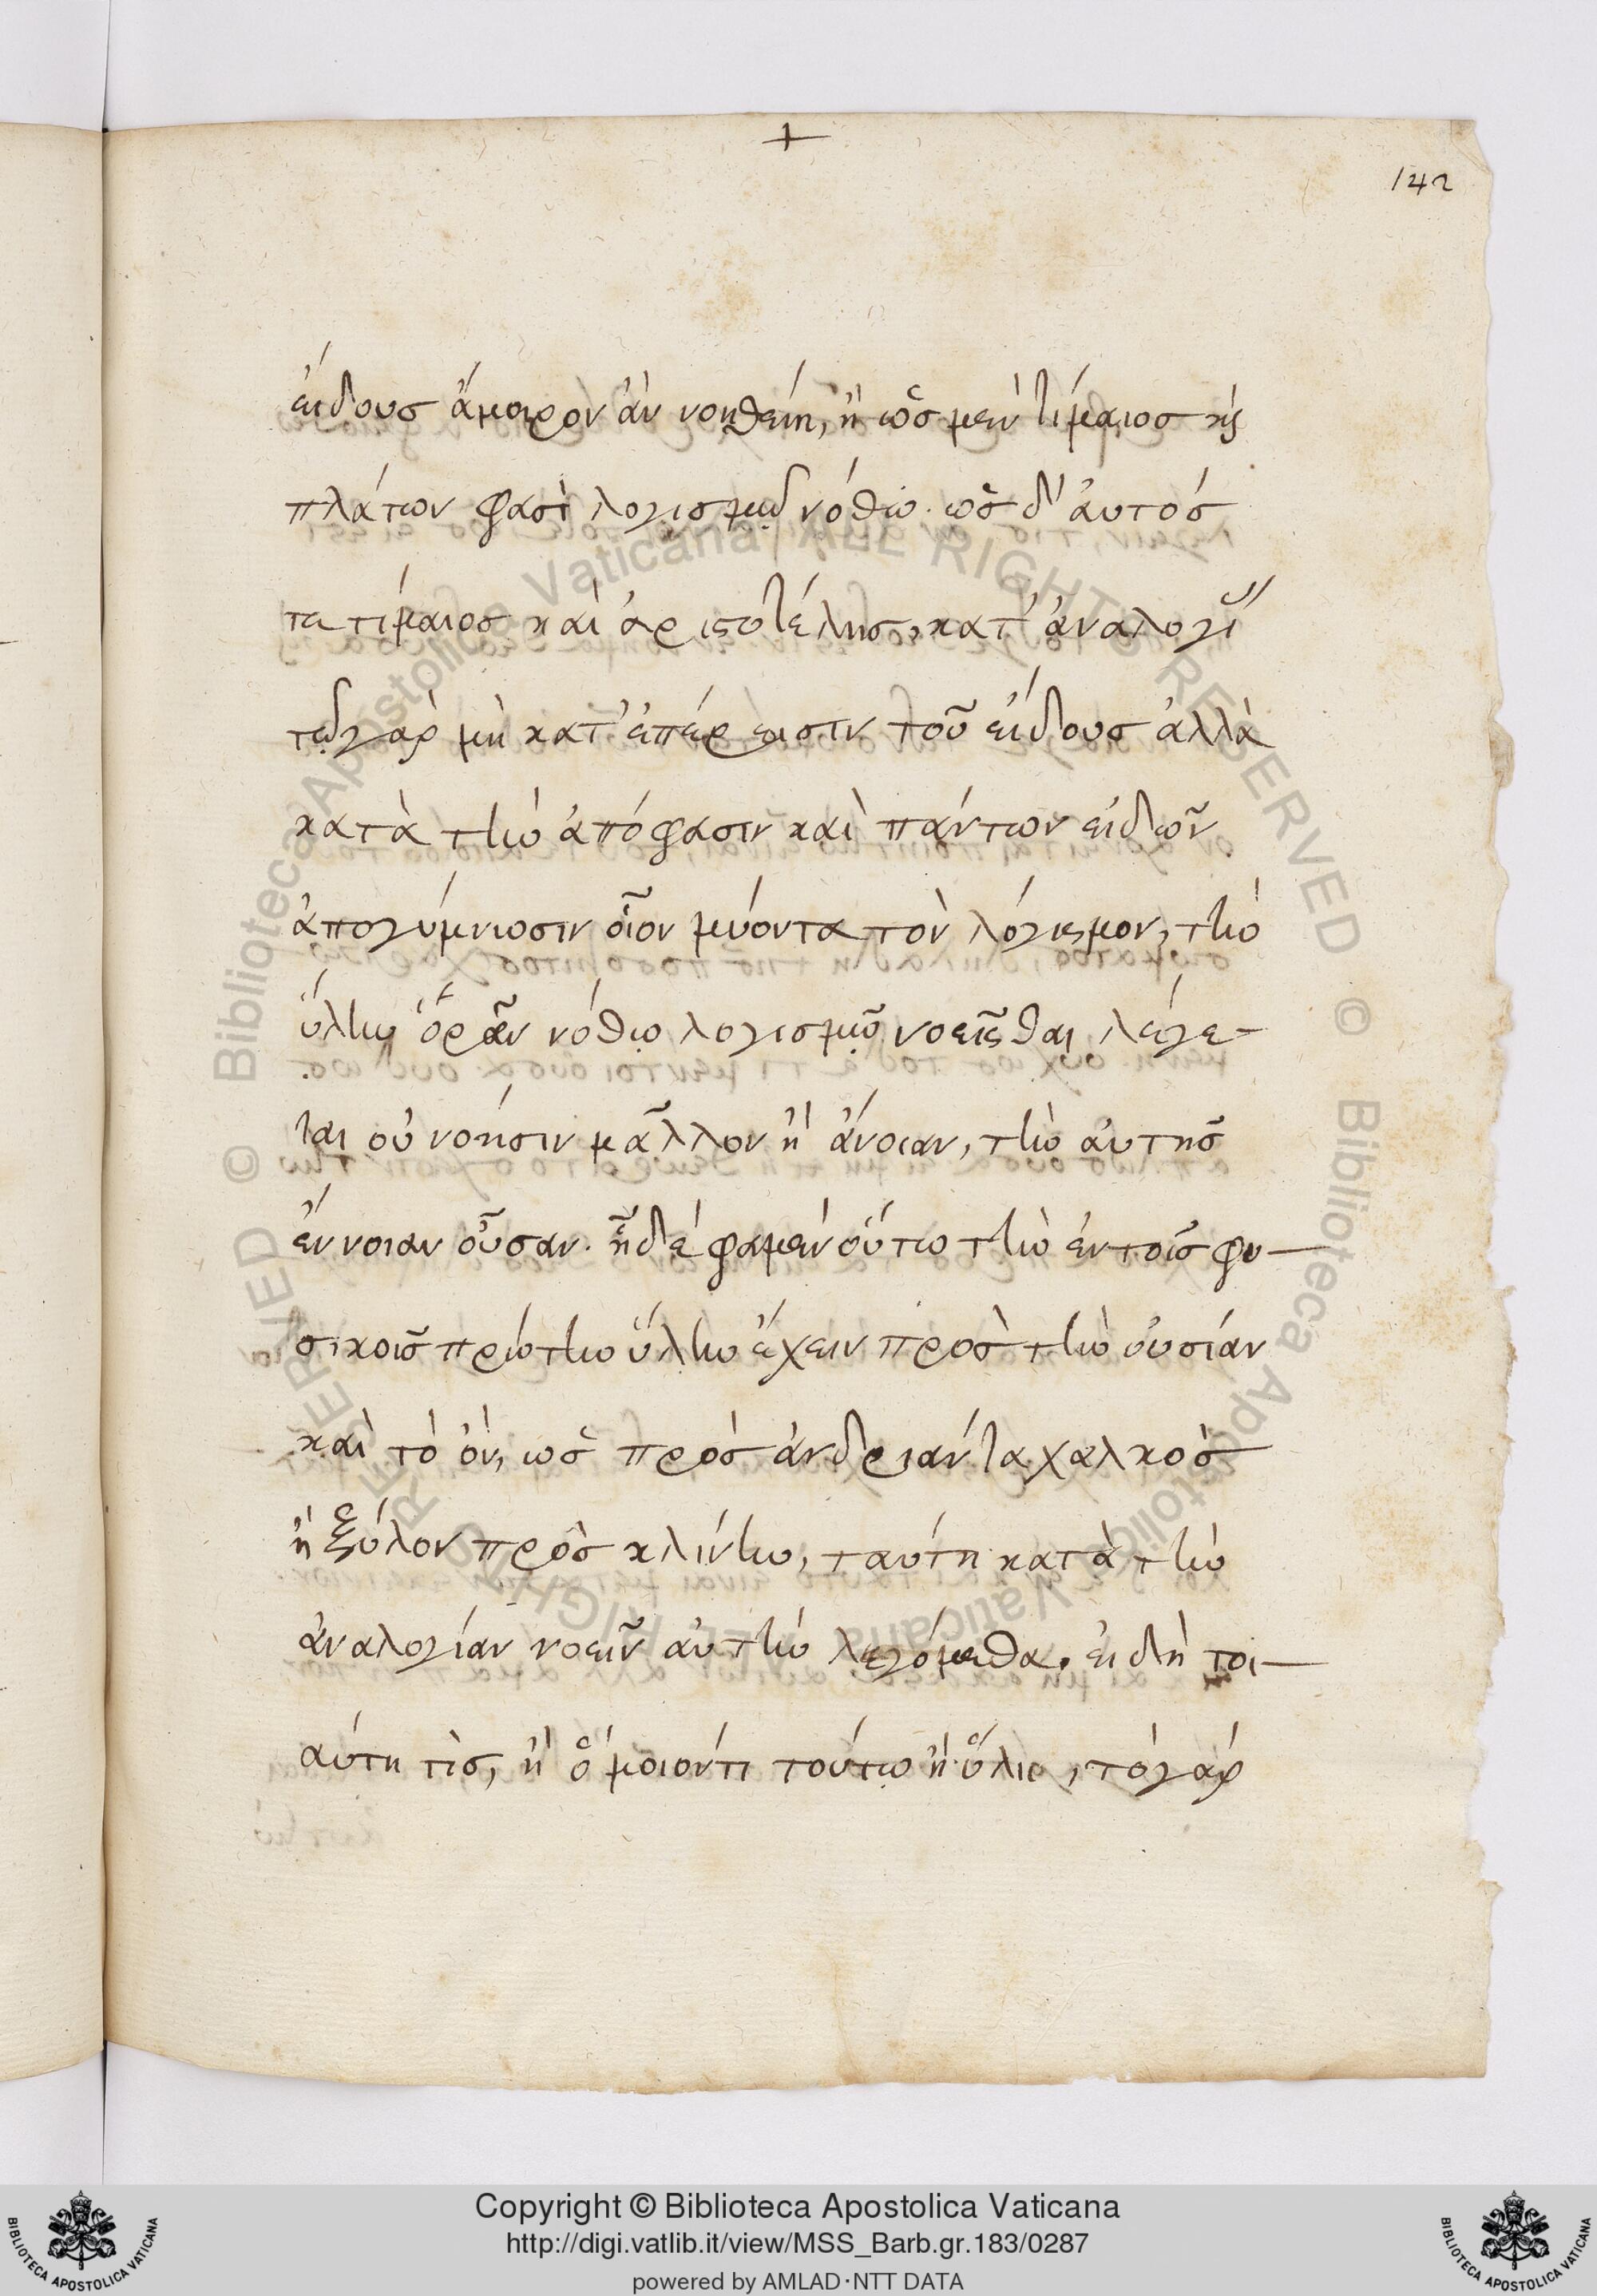 +
142
εἴδους ἄμοιρον ἂν νοηθείη, ἢ ὡς μὲν τίμαιος κς
πλάτων φασὶ λογισμῷ νόθω. ὡς δ' αὐτός
τε τίμαιος καὶ ἀριστοτέλης, κατ' ἀναλογί
τῷ γὰρ μὴ κατ' ἐπέρεισιν τοῦ εἴδους ἀλλὰ
κατὰ τὴν ἀπόφασιν καὶ πάντων εἰδῶν
ἀπογύμνωσιν οἷον μύοντα τὸν λόγισμον, τὴν
ὕλην ὁρᾶν νόθῳ λογισμῷ νοεῖσθαι λέγε-
ται οὐ νοήσιν μᾶλλον ἢ ἄνοιαν, τὴν αὐτῆς
ἔννοιαν οὖσαν. ᾗ δέ φαμεν οὕτω τὴν ἐν τοῖς φυ-
σικοῖς πρώτην ὕλην ἔχειν πρὸς τὴν οὐσίαν
καὶ τὸ ὄν, ὡς πρὸς ἀνδριάντα χαλκὸς
ἢ ξύλον πρὸς κλίνην, ταύτη κατὰ τὴν
ἀναλογίαν νοεῖν αὐτὴν λεγόμεθα. εἰ δὴ τοι-
αύτη τὶς, ἢ ὅμοιόν τι τούτῳ ἡ ὕλη, τὸ γὰρ
Copyright © Biblioteca Apostolica Vaticana
http://digi.vatlib.it/view/MSS_Barb.gr.183/0287
powered by AMLAD·NTT DATA
BIBLIOTECA APOSTOLICA VATICANA
BIBLIOTECA APOSTOLICA VATICANA
© Biblioteca Apostolica Vaticana ALL RIGHTS RESERVED © Biblioteca Apostolica Vaticana ALL RIGHTS RESERVED